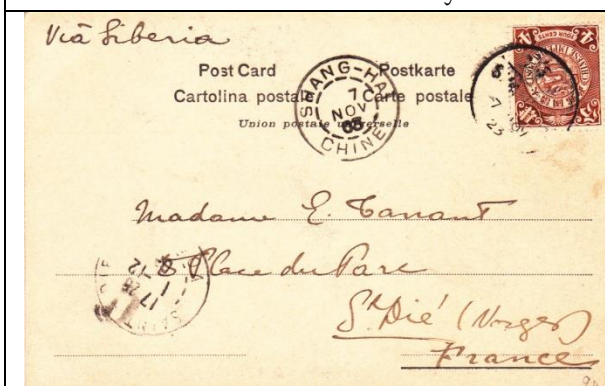 Viâ Siberia
Post Card Postkarte
Cartolina postale Carte postale
Union postale universelle
SHANG-HAI
7
NOV
CHINE
FOUR CENTS
4
Madame E.
8 Place du Parc
St Dié (Vosges)
France
17 25
12